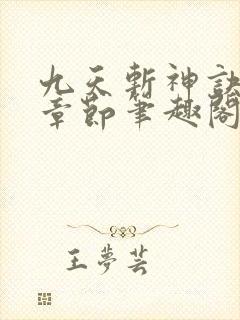 九天斬神訣
章節筆趣閣
王夢芸